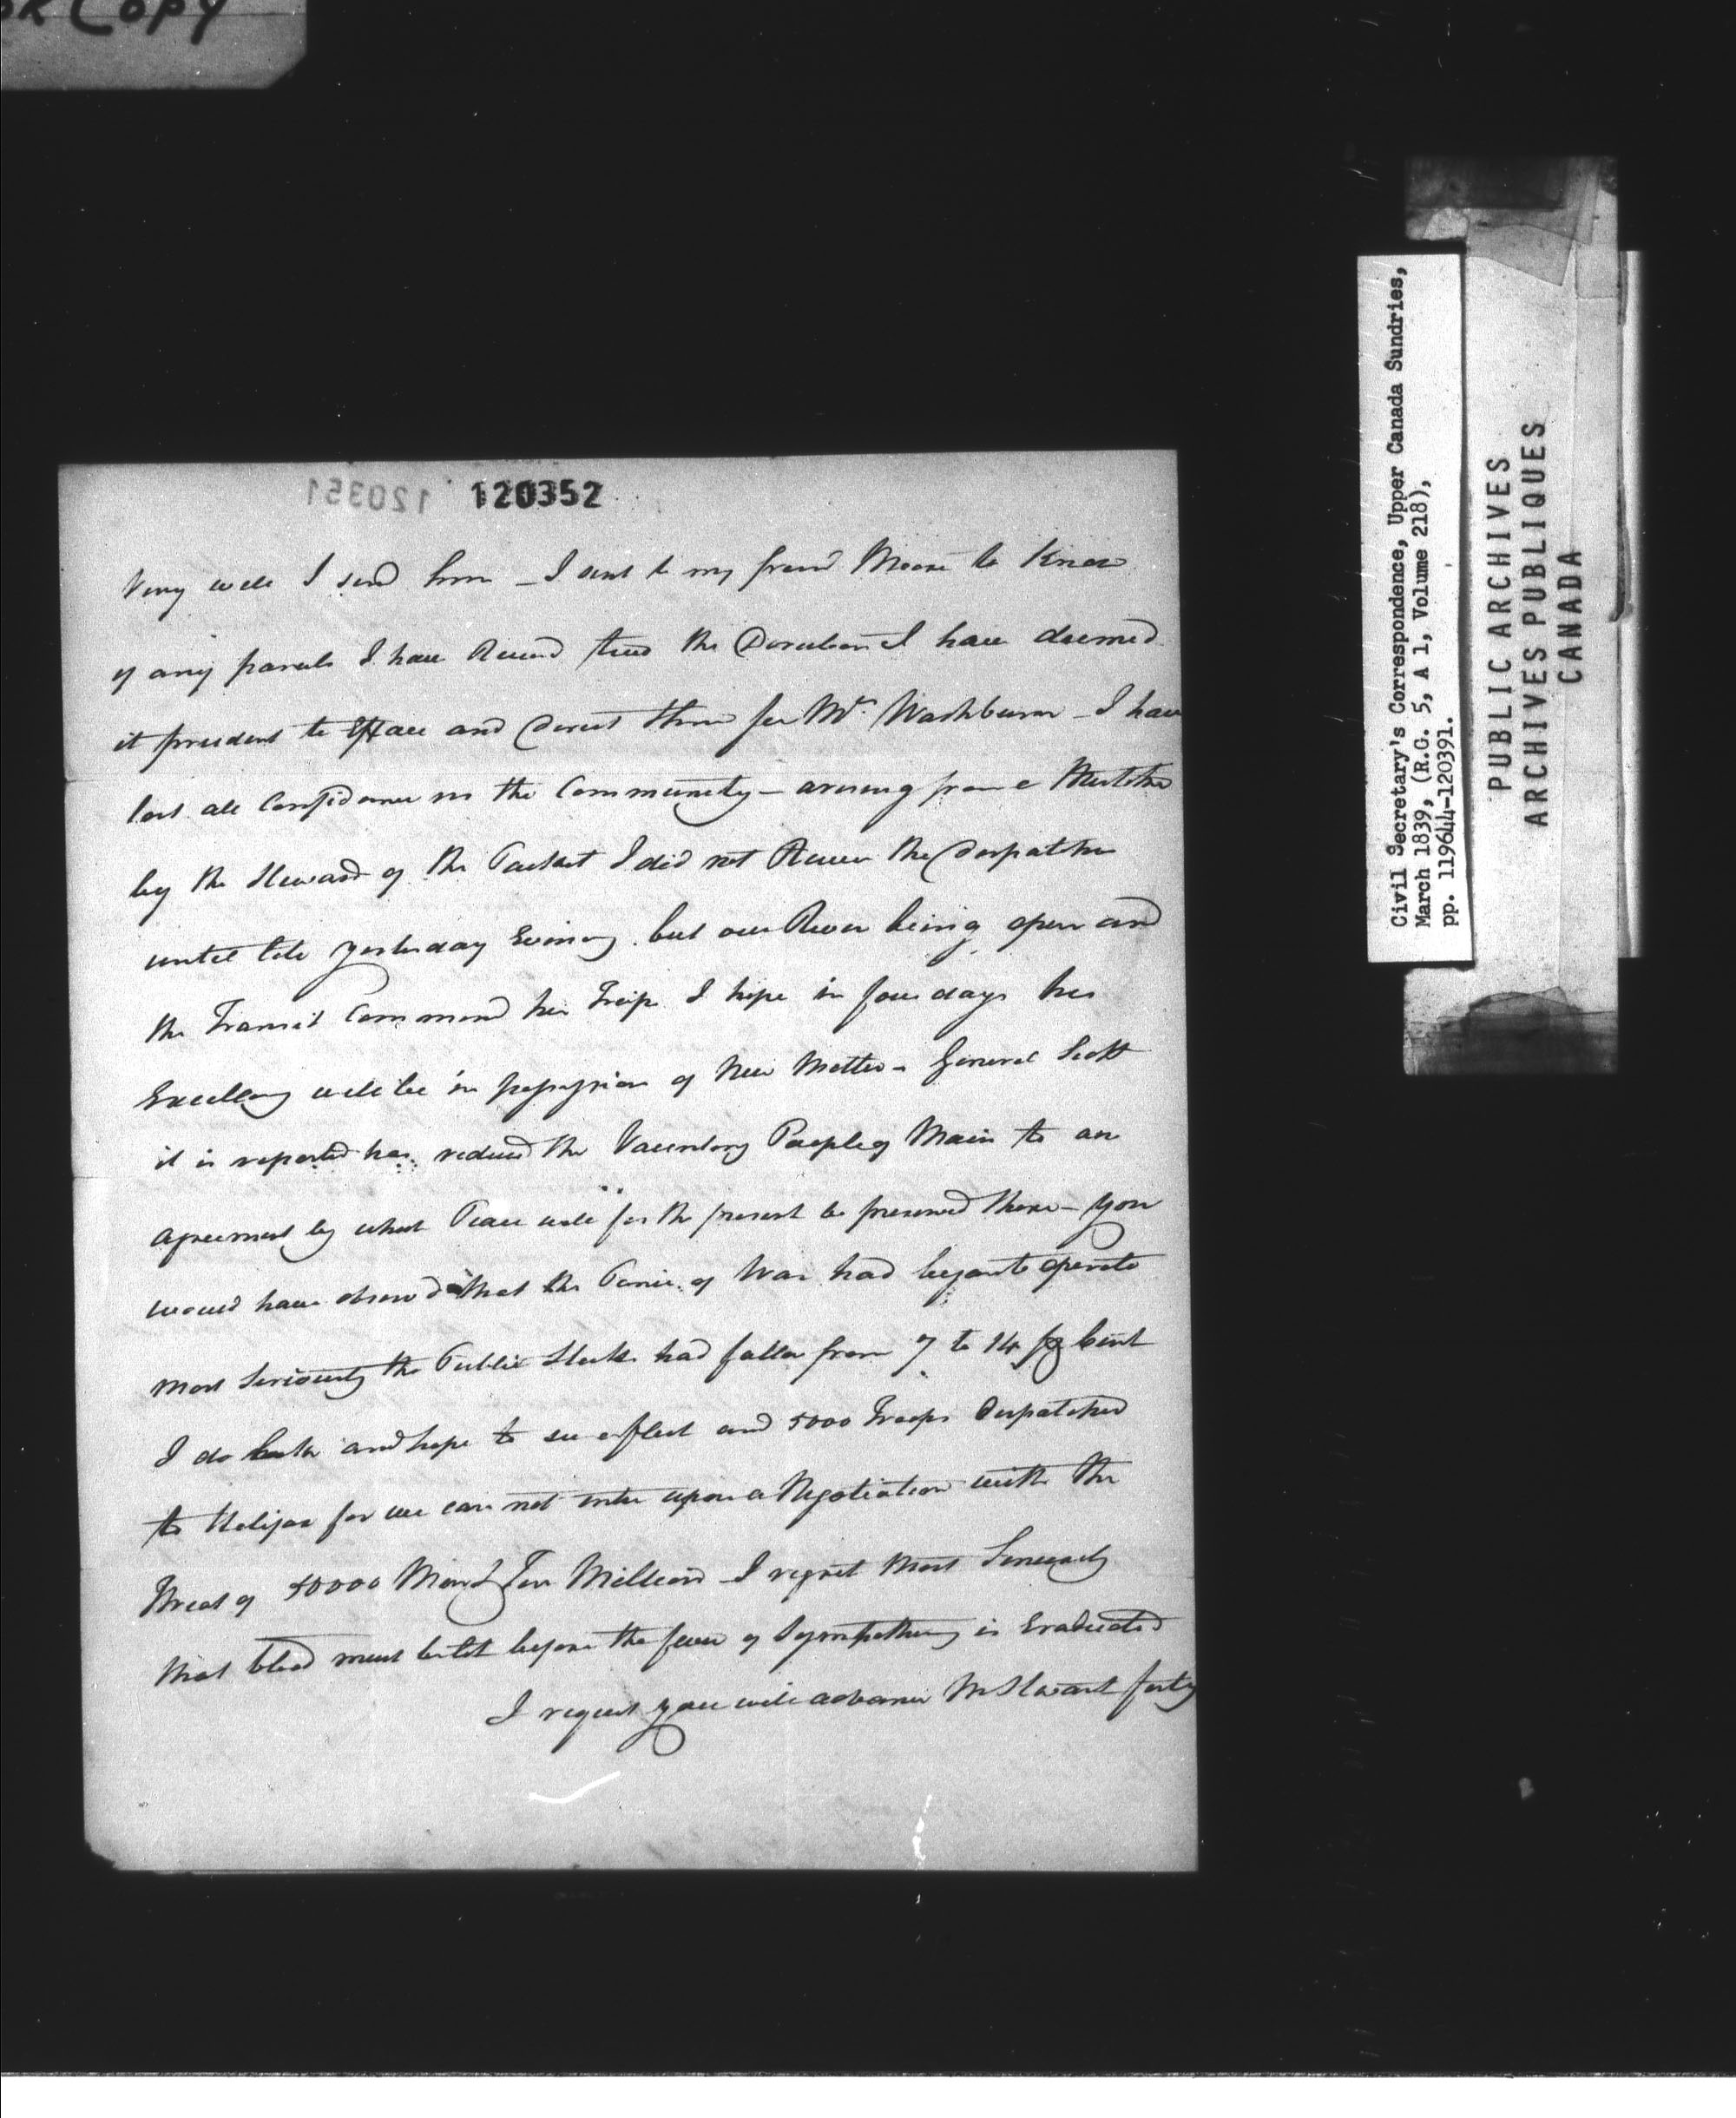 OR COPY
120351 120352
Very well I send him - I sent to my friend Moore to Know
if any parcels I have the Direction I have deemed
it prudent to Efface and Direct them for Mr. Washburn - I have
lost all Confidence in the Community - arising from a Mistake
by the Steward of the Packet I did not Receive the Despatches
until late yesterday Evening but our River being open and
the Transit Commenced her Trips I hope in four days his
Excellency will be in possession of New Matter - General Scott
it is reported has reduced the People of Main to an
agreement by what Peace will for the present be preserved there - you
would have observed that the Panic of War had began to operate
most Seriously the Public Stocks had fallen from 7 to 14 p Cent
I do and hope to see a fleet and 5000 Troops Despatched
to Halifax for we can not enter upon a Negotiation with the
Threat of 50000 Men & Ten Millions - I regret Most Sincerely
that blood must be let before the fever of Sympathy is Eradicated
I request you will advance Mr Stewart forty
Civil Secretary's Correspondence, Upper Canada Sundries,
March 1839, (R.G. 5, A 1, Volume 218),
pp. 119644-120391.
PUBLIC ARCHIVES
ARCHIVES PUBLIQUES
CANADA